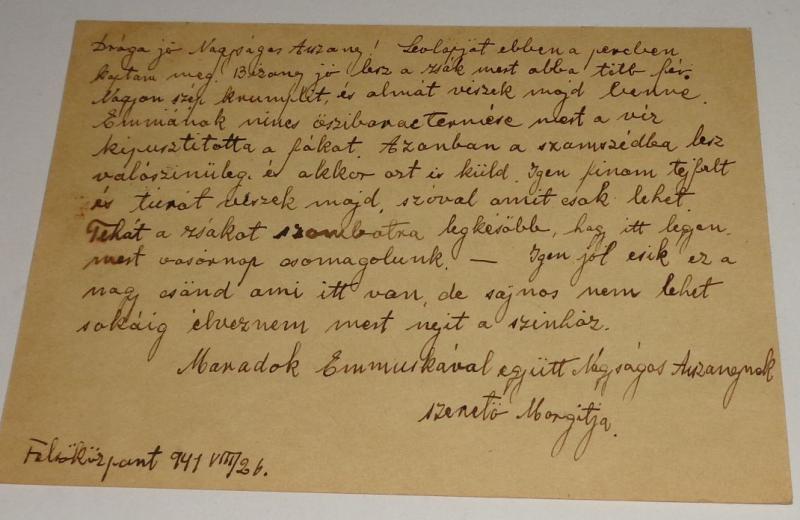 Drága jó Nagyságos Asszony! Levlapját ebben a percben
kaptam meg. Bizony jó lesz a zsák mert abba több fér.
Nagyon szép krumplit, és almát viszek majd benne.
Emmiának nincs őszibarac termése mert a víz
kipusztította a fákat. Azonban a szomszédba lesz
valószinüleg. és akkor azt is küld. Igen finom tejfelt
és túrót viszek majd, szóval amit csak lehet.
Tehát a zsákot szombatra legkésőbb, hogy itt legyen.
mert vasárnap csomagolunk. — Igen jól esik ez a
nagy csönd ami itt van, de sajnos nem lehet
sokáig élveznem mert nyit a szinház.
Maradok Emmuskával együtt Nagyságos Asszonynak
szerető Margitja.
Felsőközpont 941 VIII/26.